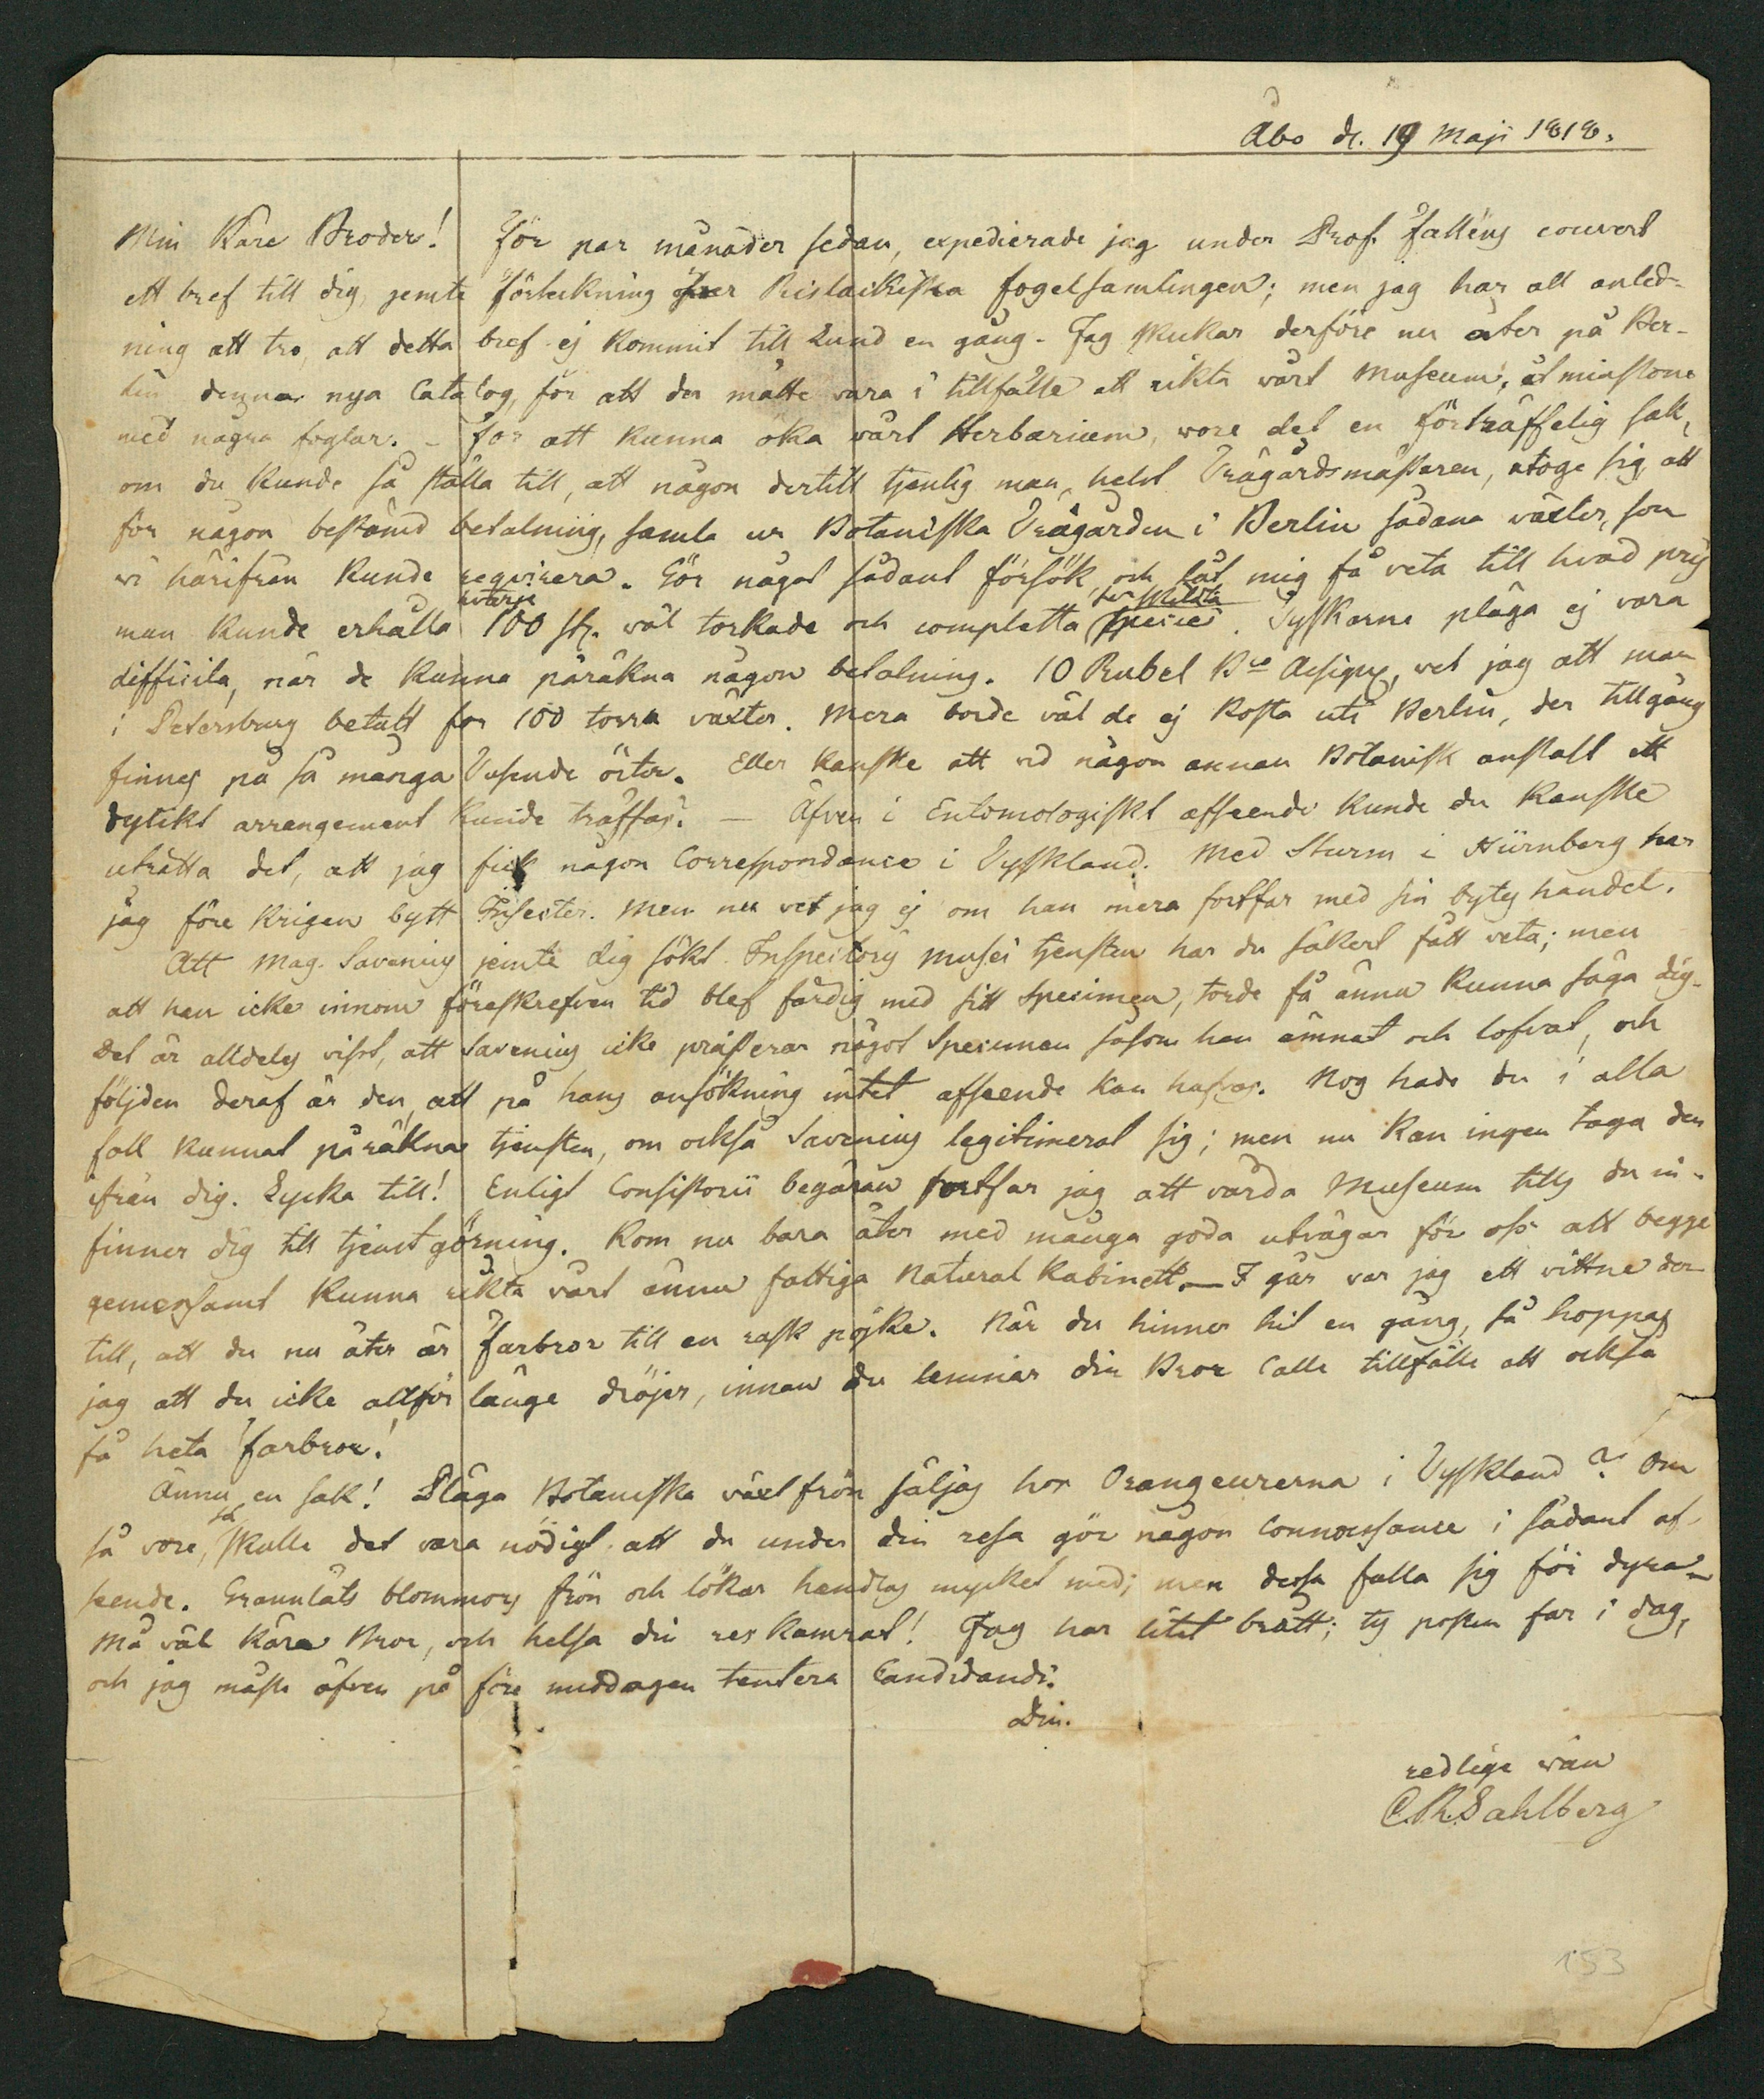 Åbo d. 19 Maji 1818.
Min Käre Broder! För par månader sedan, expedierade jag under Prof. Falléns couvert
ett bref till dig, jemte förteckning öfver Pislackiska fogelsamlingen; men jag har all anled-
ning att tro, att detta bref ej kommit till Lund en gång. Jag skickar derföre nu åter på Ber-
lin denna nya Catalog, för att du måtte vara i tillfälle att rikta vårt Museum, åtminstone
med några foglar. – För att kunna öka vårt Herbarium, wore det en förträffelig sak,
om du kunde så ställa till, att någon dertill tjenlig man, helst Trägårdsmästaren, åtoge sig, att
för någon bestämd betalning, samla ur Botaniska Trägården i Berlin sådana växter, som
vi härifrån kunde reqvirera. Gör något sådant försök, och låt mig få veta till hvad pris
man kunde erhålla hvarje 100 st. wäl torkade och completta specie. Tyskarne pläga ej vara
difficila, när de kunna påräkna någon betalning. 10 Rubel Bco Assign., vet jag att man
i Petersburg betalt for 100 torra växter. Mera borde väl de ej kosta uti Berlin, der tillgång
finnes på så många Tusende örter. Eller kanske att vid någon annan Botanisk anstalt ett
dylikt arrangement kunde träffas. – Äfven i Entomologiskt afseende kunde du kanske
uträtta det, att jag fick någon Correspondance i Tyskland. Med Sturm i Nürnberg har
jag före Krigen bytt Insecter. Men nu vet jag ej om han mera fortfar med sin bytes handel.
Att Mag. Savenius jemte dig sökt Inspectors Musei tjensten har du säkert fått veta; men
att han icke innom föreskrefven tid blef färdig med sitt Specimen, torde få ännu kunna säga dig.
Det är alldeles visst, att Savenius icke præsterar något Specimen såsom han ämnat och lofvat, och
följden deraf är den, att på hans ansökning intet afseende kan hafvas. Nog hade du i alla
fall kunnat påräkna tjensten, om också Savenius legitimerat sig; men nu kan ingen taga den
ifrån dig. Lycka till! Enligt Consistorii begäran fortfar jag att vårda Museum tills du in-
finner dig till tjenstgörning. Kom nu bara åter med många goda utvägar för oss att begge
gemensamt kunna rikta vårt ännu fattiga Natural Kabinett. – I går var jag ett vittne der-
till, att du nu åter är Farbror till en rask pojke. När du hinner hit en gång, så hoppas
jag att du icke allför länge dröjer, innan du lemnar din Bror Calle tillfälle att också
få heta farbror!
Ännu en sak! Pläga Botaniska växtfrön säljas hos Orangeurerna i Tyskland? Om
så vore, så skulle det vara nödigt att du under din resa gör någon Connoissance i sådant af-
seende. Grannlåts blommors frön och lökar handlas mycket med; men dessa falla sig för dyra. –
Må väl Kära Bror, och helsa din res kamrat! Jag har litet brått; ty posten far i dag,
och jag måste äfven på före middagen tentera Candidandi.
Din.
redlige wän
C. R. Sahlberg
153